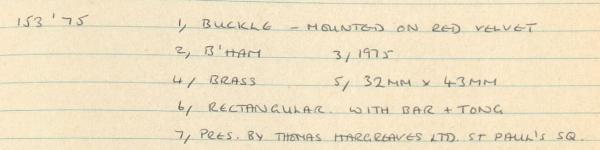 153 '75 1, BUCKLE - MOUNTED ON RED VELVET
2, B'HAM 3, 1975
4, BRASS 5, 32MM x 43MM
6, RECTANGULAR. WITH BAR + TONG
7, PRES. BY THOMAS HARGREAVES LTD. ST PAUL'S SQ.